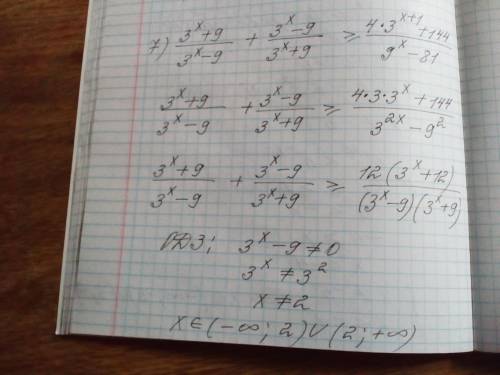 7) (3^x+9)/(3^x-9) + (3^x-9)/(3^x+9) ≥ (4·3^(x+1)+144)/(9^x-81)
(3^x+9)/(3^x-9) + (3^x-9)/(3^x+9) ≥ (4·3·3^x+144)/(3^(2x)-9^2)
(3^x+9)/(3^x-9) + (3^x-9)/(3^x+9) ≥ 12(3^x+12)/((3^x-9)(3^x+9))
ОДЗ: 3^x-9≠0
3^x≠3^2
x≠2
x∈(-∞; 2)∪(2; +∞)